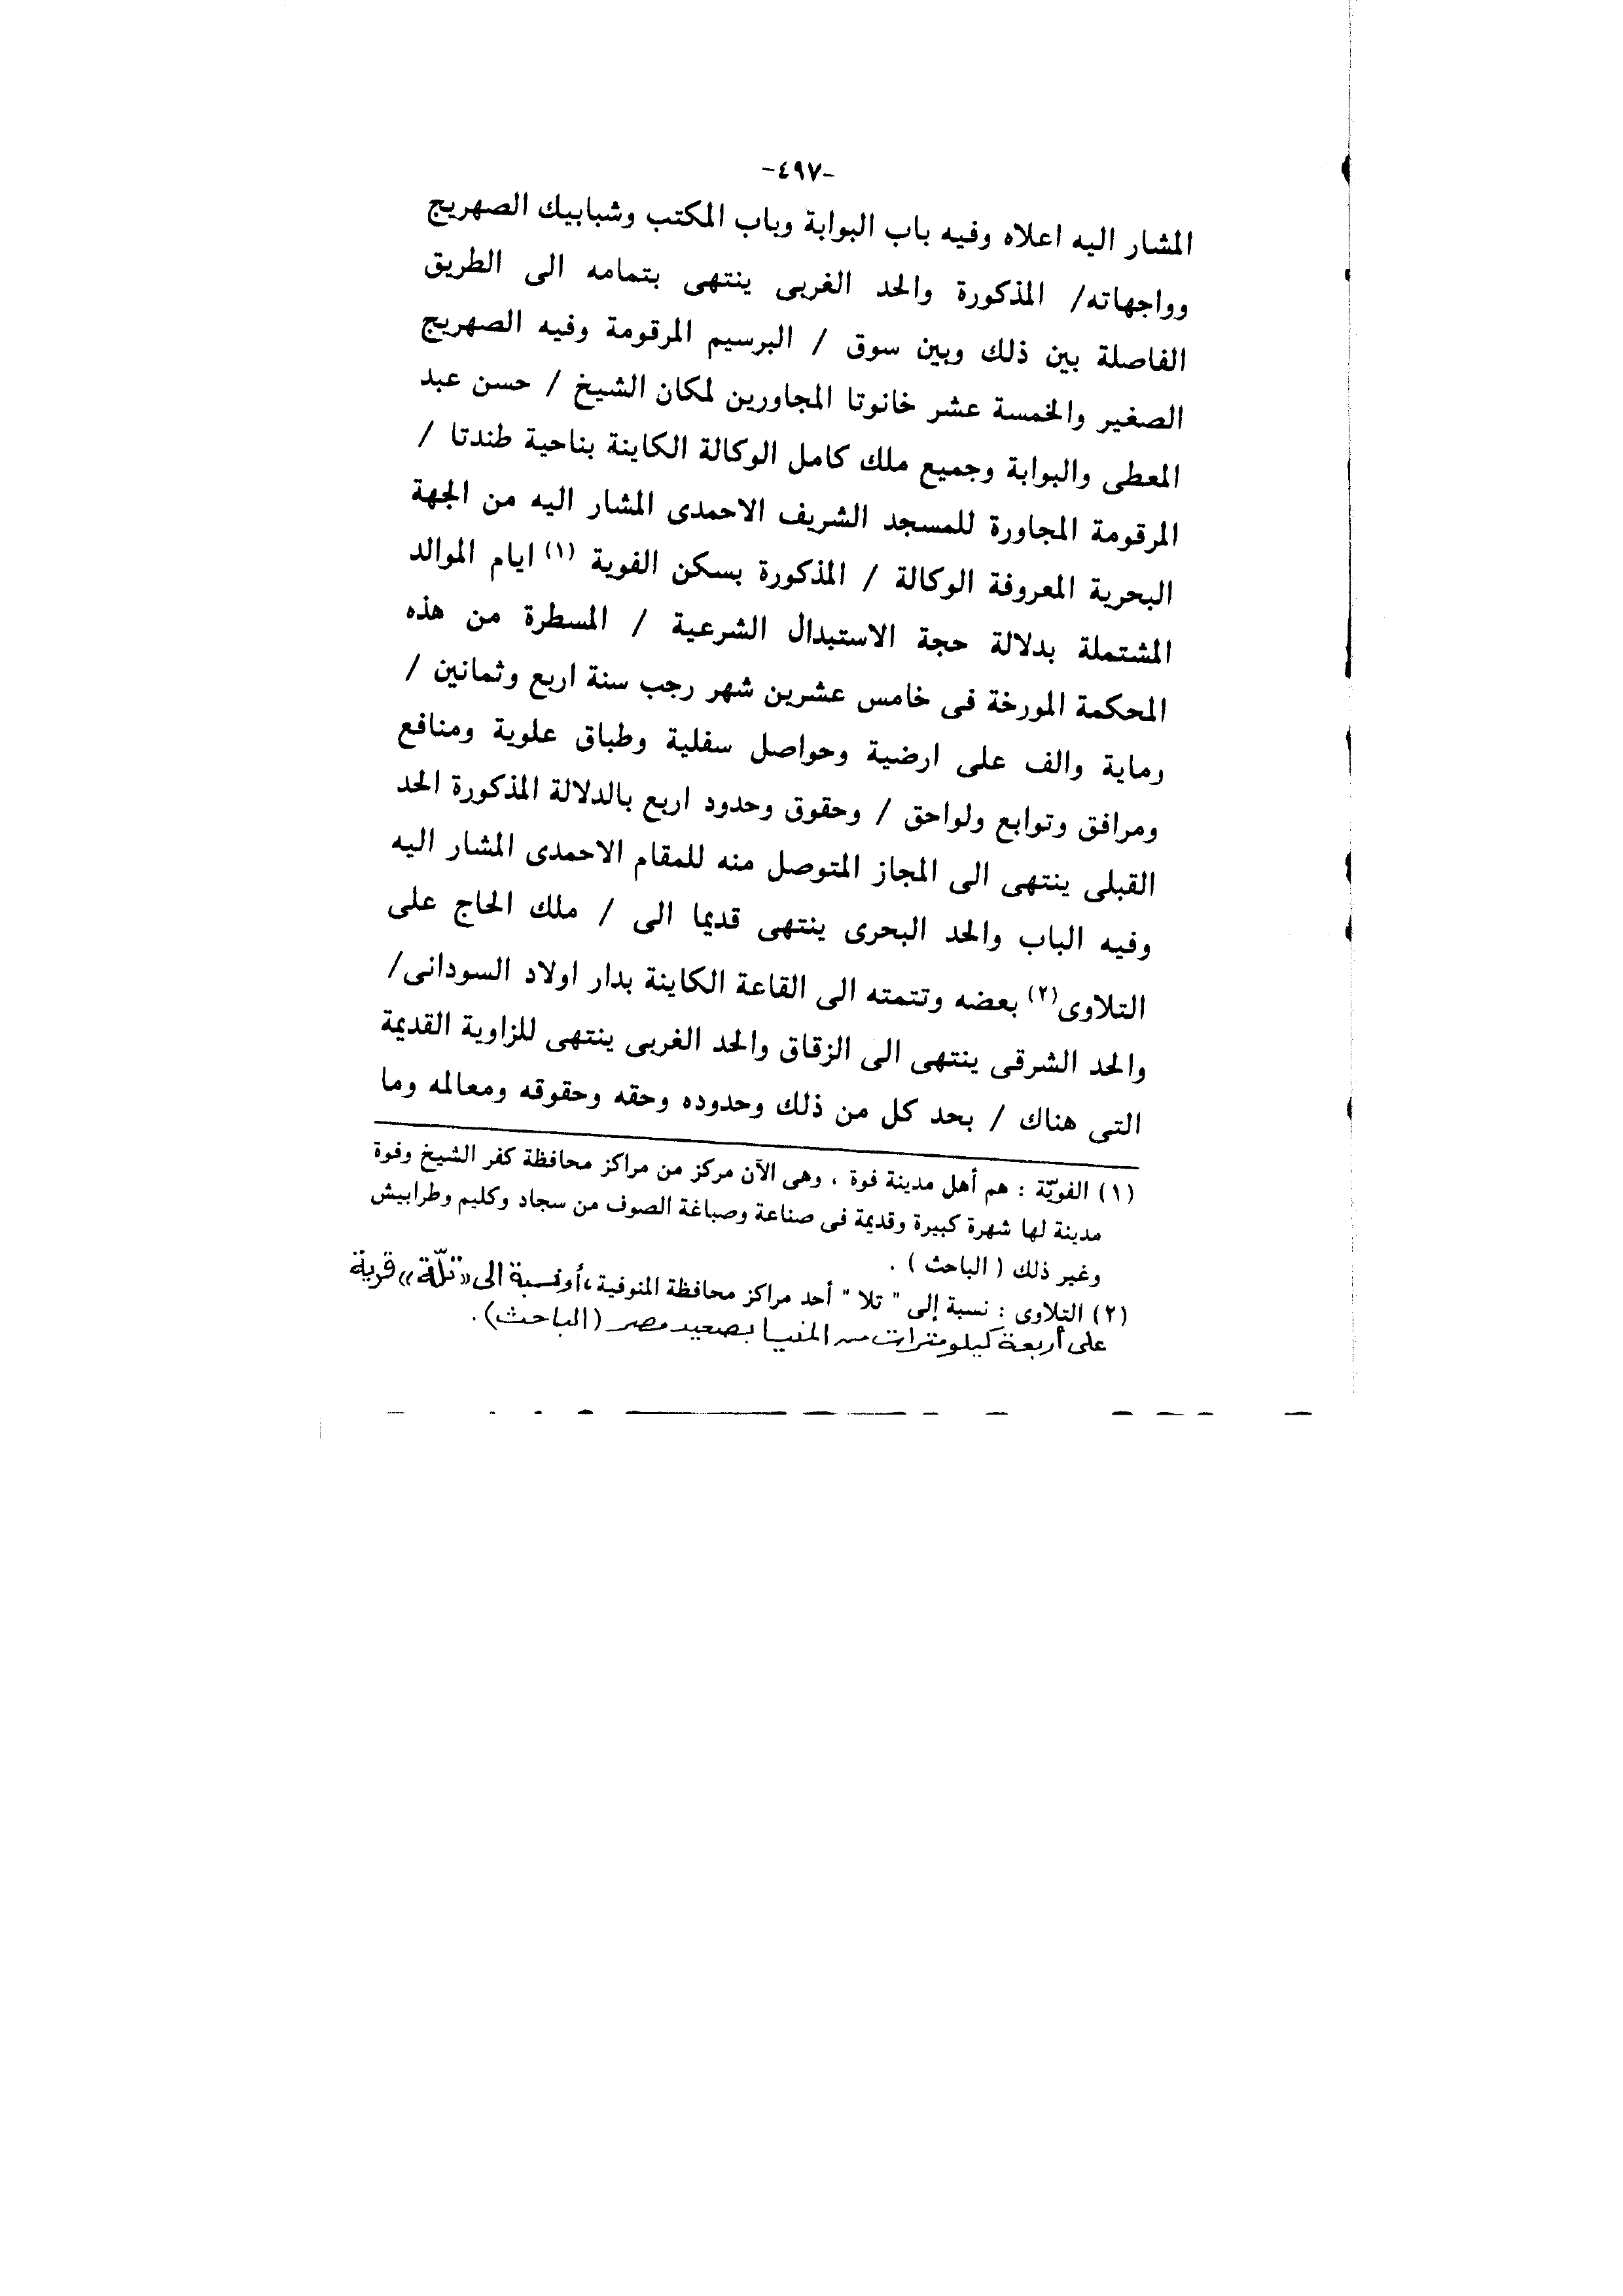 -٤٩٧-
المشار اليه اعلاه وفيه باب البوابة وباب المكتب وشبابيك الصهريج
وواجهاته/ المذكورة والحد الغربى ينتهى بتمامه الى الطريق
الفاصلة بين ذلك وبين سوق / البرسيم المرقومة وفيه الصهريج
الصغير والخمسة عشر خانوتا المجاورين لمكان الشيخ / حسن عبد
المعطى والبوابة وجميع ملك كامل الوكالة الكاينة بناحية طندتا /
المرقومة المجاورة للمسجد الشريف الاحمدى المشار اليه من الجهة
البحرية المعروفة الوكالة / المذكورة بسكن الفوية (١) ايام الموالد
المشتملة بدلالة حجة الاستبدال الشرعية / المسطرة من هذه
المحكمة المورخة فى خامس عشرين شهر رجب سنة اربع وثمانين /
وماية والف على ارضية وحواصل سفلية وطباق علوية ومنافع
ومرافق وتوابع ولواحق / وحقوق وحدود اربع بالدلالة المذكورة الحد
القبلى ينتهى الى المجاز المتوصل منه للمقام الاحمدى المشار اليه
وفيه الباب والحد البحرى ينتهى قديما الى / ملك الحاج على
التلاوى(٢) بعضه وتتمته الى القاعة الكاينة بدار اولاد السودانى/
والحد الشرقى ينتهى الى الزقاق والحد الغربى ينتهى للزاوية القديمة
التى هناك / بحد كل من ذلك وحدوده وحقه وحقوقه ومعالمه وما
(١) الفويّة : هم أهل مدينة فوة ، وهى الآن مركز من مراكز محافظة كفر الشيخ وفوة
مدينة لها شهرة كبيرة وقديمة فى صناعة وصباغة الصوف من سجاد وكليم وطرابيش
وغير ذلك ( الباحث ) .
(٢) التلاوى : نسبة إلى " تلا " أحد مراكز محافظة المنوفية، أو نسبة الى «تلّة» قرية
على أربعة كيلو مترات من المنيا بصعيد مصر (الباحث).